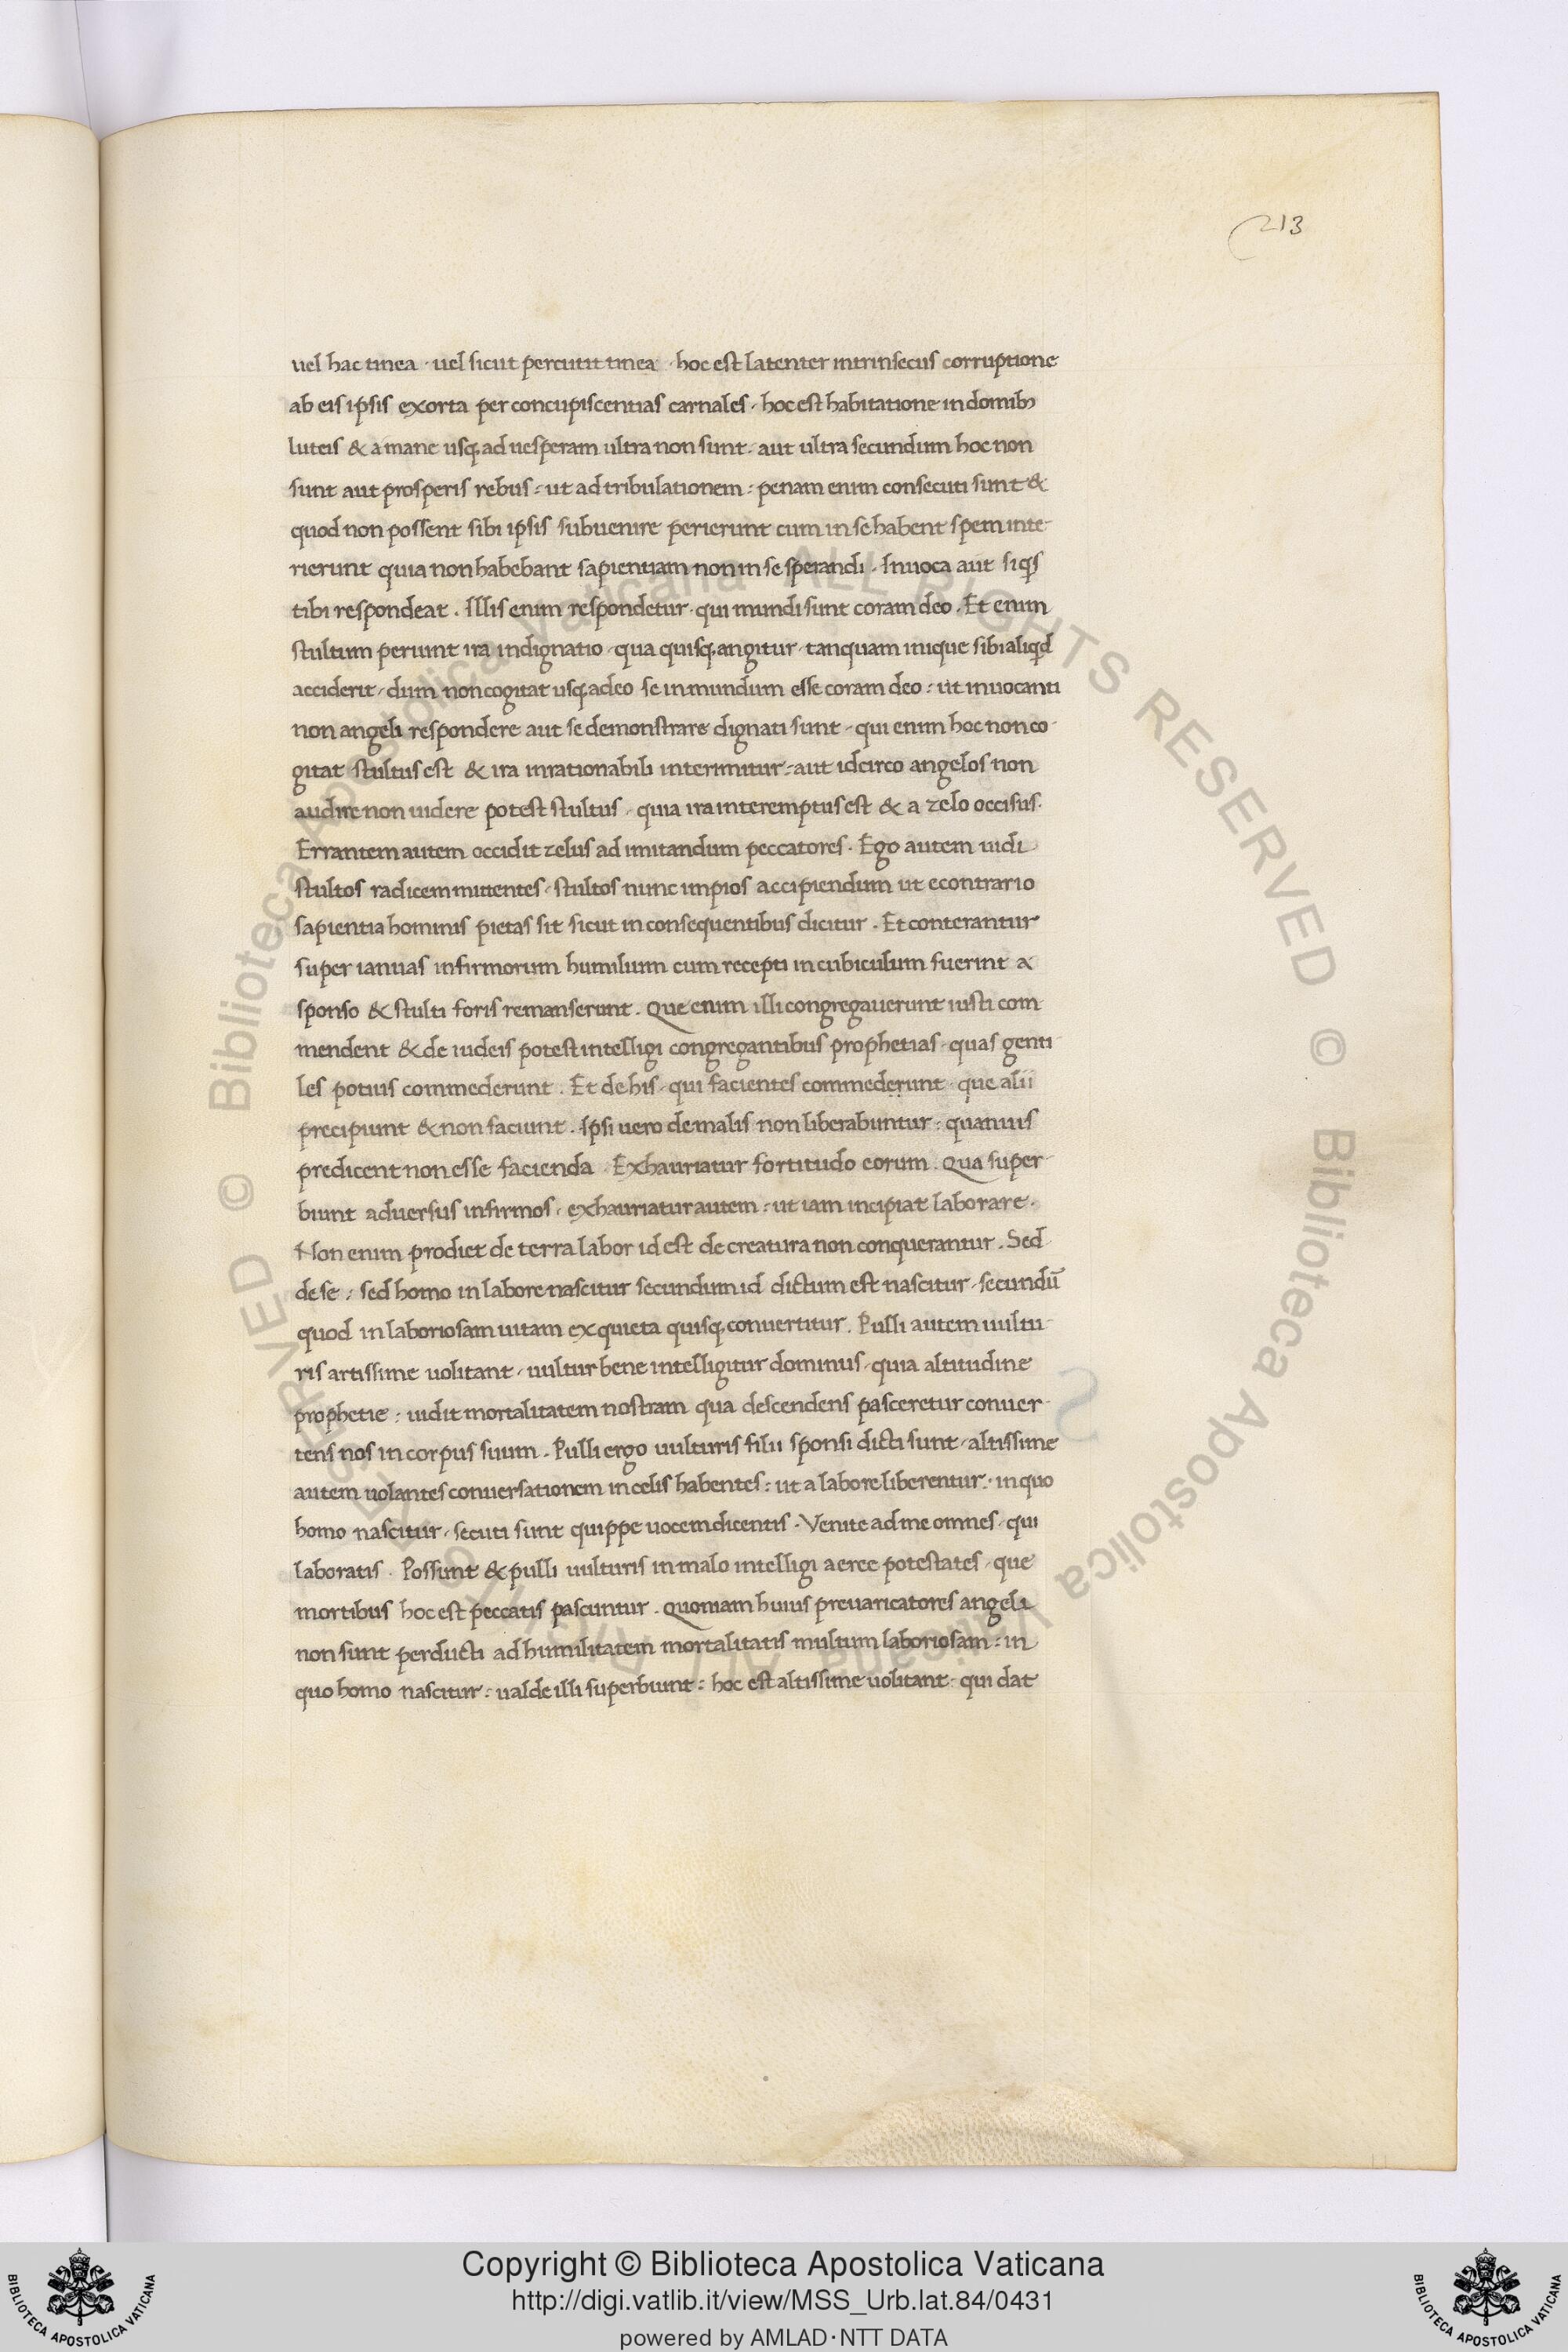 213
uel hac tinea · uel sicut percutit tinea · hoc est latenter intrinsecus corruptione
ab eis ipsis exorta per concupiscentias carnales · hoc est habitatione in domibꝫ
luteis & a mane usq; ad uesperam ultra non sunt · aut ultra secundum hoc non
sunt aut prosperis rebus : ut ad tribulationem : penam enim consecuti sunt &
quod non possent sibi ipsis subuenire perierunt cum in se habent spem inte-
rierunt quia non habebant sapientiam non in se sperandi . Inuoca aut si qs
tibi respondeat . Illis enim respondetur · qui mundi sunt coram deo . Et enim
stultum periunt ira indignatio · qua quisq; angitur · tanquam inique sibi aliqd
acciderit · dum non cogitat usq; adeo se inmundum esse coram deo : ut inuocanti
non angeli respondere aut se demonstrare dignati sunt · qui enim hoc non co-
gitat stultus est & ira inrationabili interimitur : aut idcirco angelos non
audire non uidere potest stultus · quia ira interemptus est & a zelo occisus ·
Errantem autem occidit zelus ad imitandum peccatores . Ego autem uidi
stultos radicem mittentes · stultos nunc impios accipiendum ut econtrario
sapientia hominis pietas sit sicut in consequentibus dicitur . Et conterantur
super ianuas infirmorum humilium cum recepti in cubiculum fuerint a
sponso & stulti foris remanserunt . Que enim illi congregauerunt iusti com-
mendent & de iudeis potest intelligi congregantibus prophetias · quas genti-
les potius commederunt . Et de his · qui facientes commederunt · que alii
precipiunt & non faciunt . Ipsi uero de malis non liberabuntur : quamuis
predicent non esse facienda . Exhauriatur fortitudo eorum . Qua super-
biunt aduersus infirmos · exhauriatur autem : ut iam incipiat laborare .
Non enim prodiet de terra labor id est de creatura non conquerantur . Sed
de se : sed homo in labore nascitur secundum id dictum est nascitur · secundū
quod in laboriosam uitam ex quieta quisq; conuertitur . Pulli autem uultu-
ris artissime uolitant · uultur bene intelligitur dominus · quia altitudine
prophetie : uidit mortalitatem nostram qua descendens pasceretur conuer-
tens nos in corpus suum . Pulli ergo uulturis filii sponsi dicti sunt · altissime
autem uolantes conuersationem in celis habentes : ut a labore liberentur · in quo
homo nascitur · secuti sunt quippe uocem dicentis . Venite ad me omnes · qui
laboratis . Possunt & pulli uulturis in malo intelligi aeree potestates · que
mortibus hoc est peccatis pascuntur . Quoniam huius preuaricatores angeli
non sunt perducti ad humilitatem mortalitatis multum laboriosam : in
quo homo nascitur : ualde illi superbiunt : hoc est altissime uolitant · qui dat
© Biblioteca Apostolica Vaticana ALL RIGHTS RESERVED © Biblioteca Apostolica Vaticana ALL RIGHTS RESERVED
Copyright © Biblioteca Apostolica Vaticana
http://digi.vatlib.it/view/MSS_Urb.lat.84/0431
powered by AMLAD·NTT DATA
BIBLIOTECA APOSTOLICA VATICANA
BIBLIOTECA APOSTOLICA VATICANA